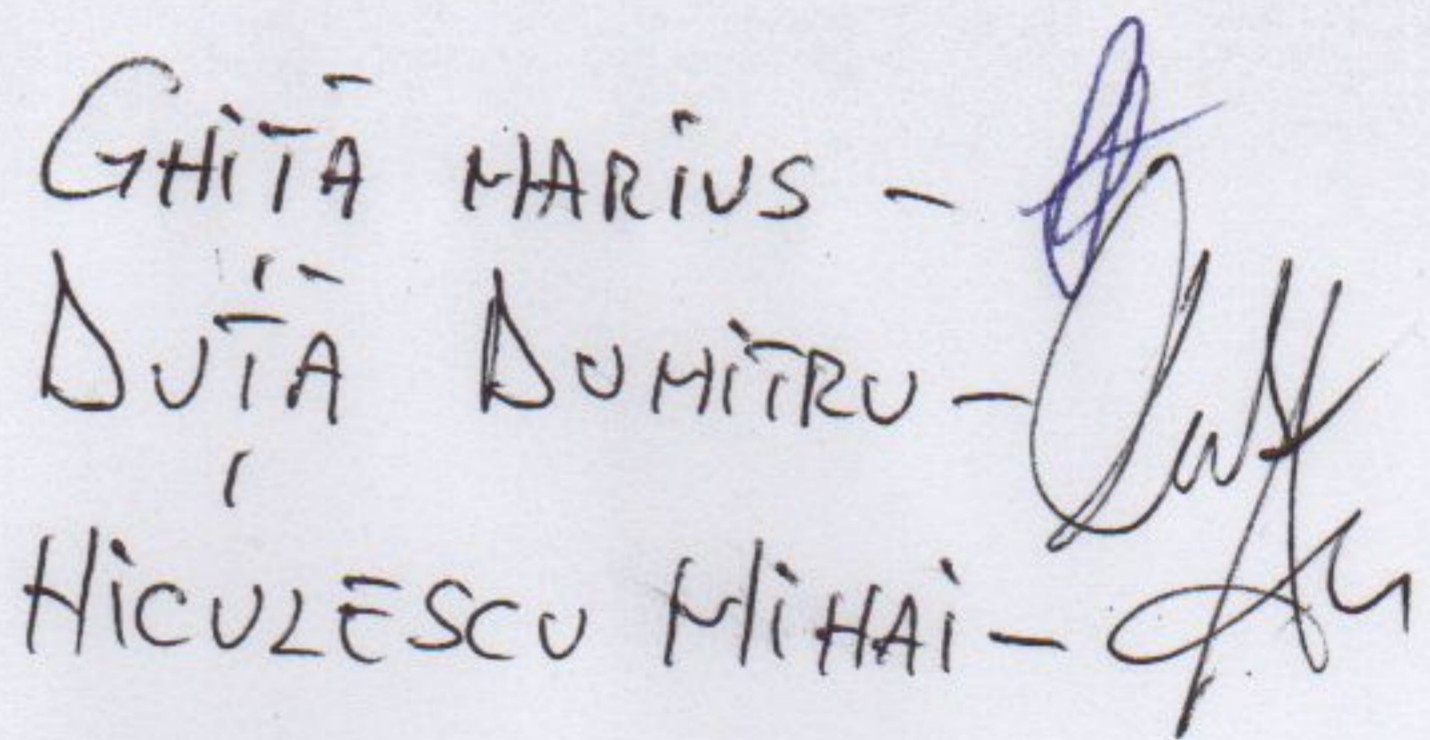 GHIȚĂ MARIUS -
DUȚĂ DUMITRU -
NICULESCU MIHAI -